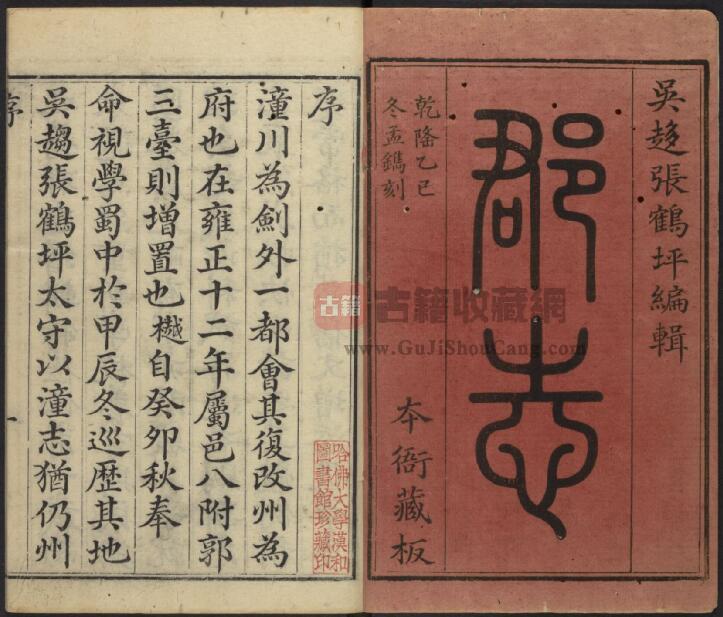 吳趨張鶴坪編輯
郡志
本衙藏板
乾隆乙巳
冬孟鐫刻
序
潼川為劍外一都會其復改州為
府也在雍正十二年屬邑八附郭
三臺則增置也樾自癸卯秋奉
命視學蜀中於甲辰冬巡歷其地
吳趨張鶴坪太守以潼志猶仍州
序
一
哈佛大學漢和
圖書館珍藏印
古籍
古籍收藏網
www.GuJiShouCang.com